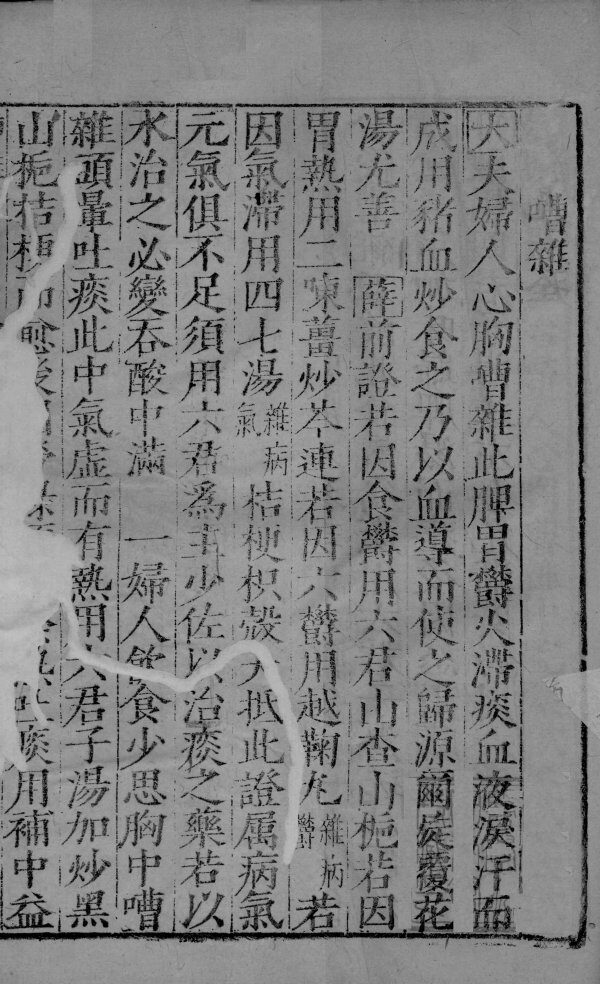 嘈雜
大夫婦人心胸嘈雜此脾胃鬱火滯痰血液淚汗而
成用豬血炒食之乃以血導而使之歸源爾旋覆花
湯尤善 薛前證若因食鬱用六君山查山梔若因
胃熱用二陳薑炒芩連若因六鬱用越鞠丸雜病鬱若
因氣滯用四七湯雜病氣桔梗枳殼大抵此證属病氣
元氣俱不足須用六君爲主少佐以治痰之藥若以
水治之必變吞酸中滿 一婦人飲食少思胸中嘈
雜頭暈吐痰此中氣虛而有熱用六君子湯加炒黑
山梔桔梗而愈後 痰用補中益